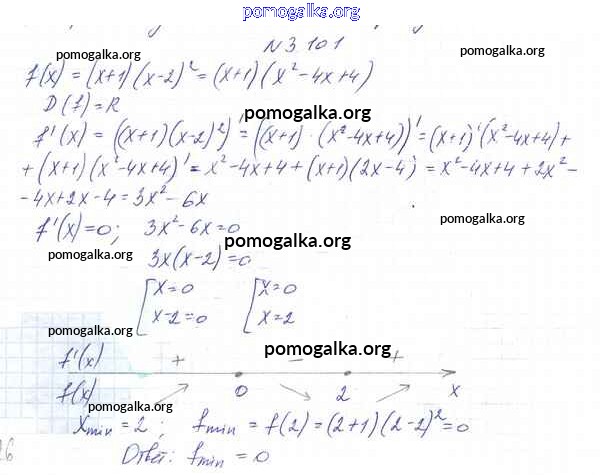 pomogalka.org
N 3 101
pomogalka.org pomogalka.org
f(x) = (x+1)(x-2)² = (x+1)(x²-4x+4)
D(f)=R
pomogalka.org
f'(x) = ((x+1)(x-2)²)' = ((x+1)·(x²-4x+4))' = (x+1)'(x²-4x+4)+
pomogalka.org pomogalka.org
+(x+1)(x²-4x+4)' = x²-4x+4+(x+1)(2x-4) = x²-4x+4+2x²-
-4x+2x-4=3x²-6x
pomogalka.org
f'(x)=0; 3x²-6x=0
pomogalka.org
pomogalka.org
3x(x-2)=0
[x=0 [x=0
x-2=0 x=2
pomogalka.org
pomogalka.org
f'(x) + − +
f(x) 0 2 x
pomogalka.org
xmin = 2; fmin = f(2)=(2+1)(2-2)²=0
Ответ: fmin = 0
pomogalka.org